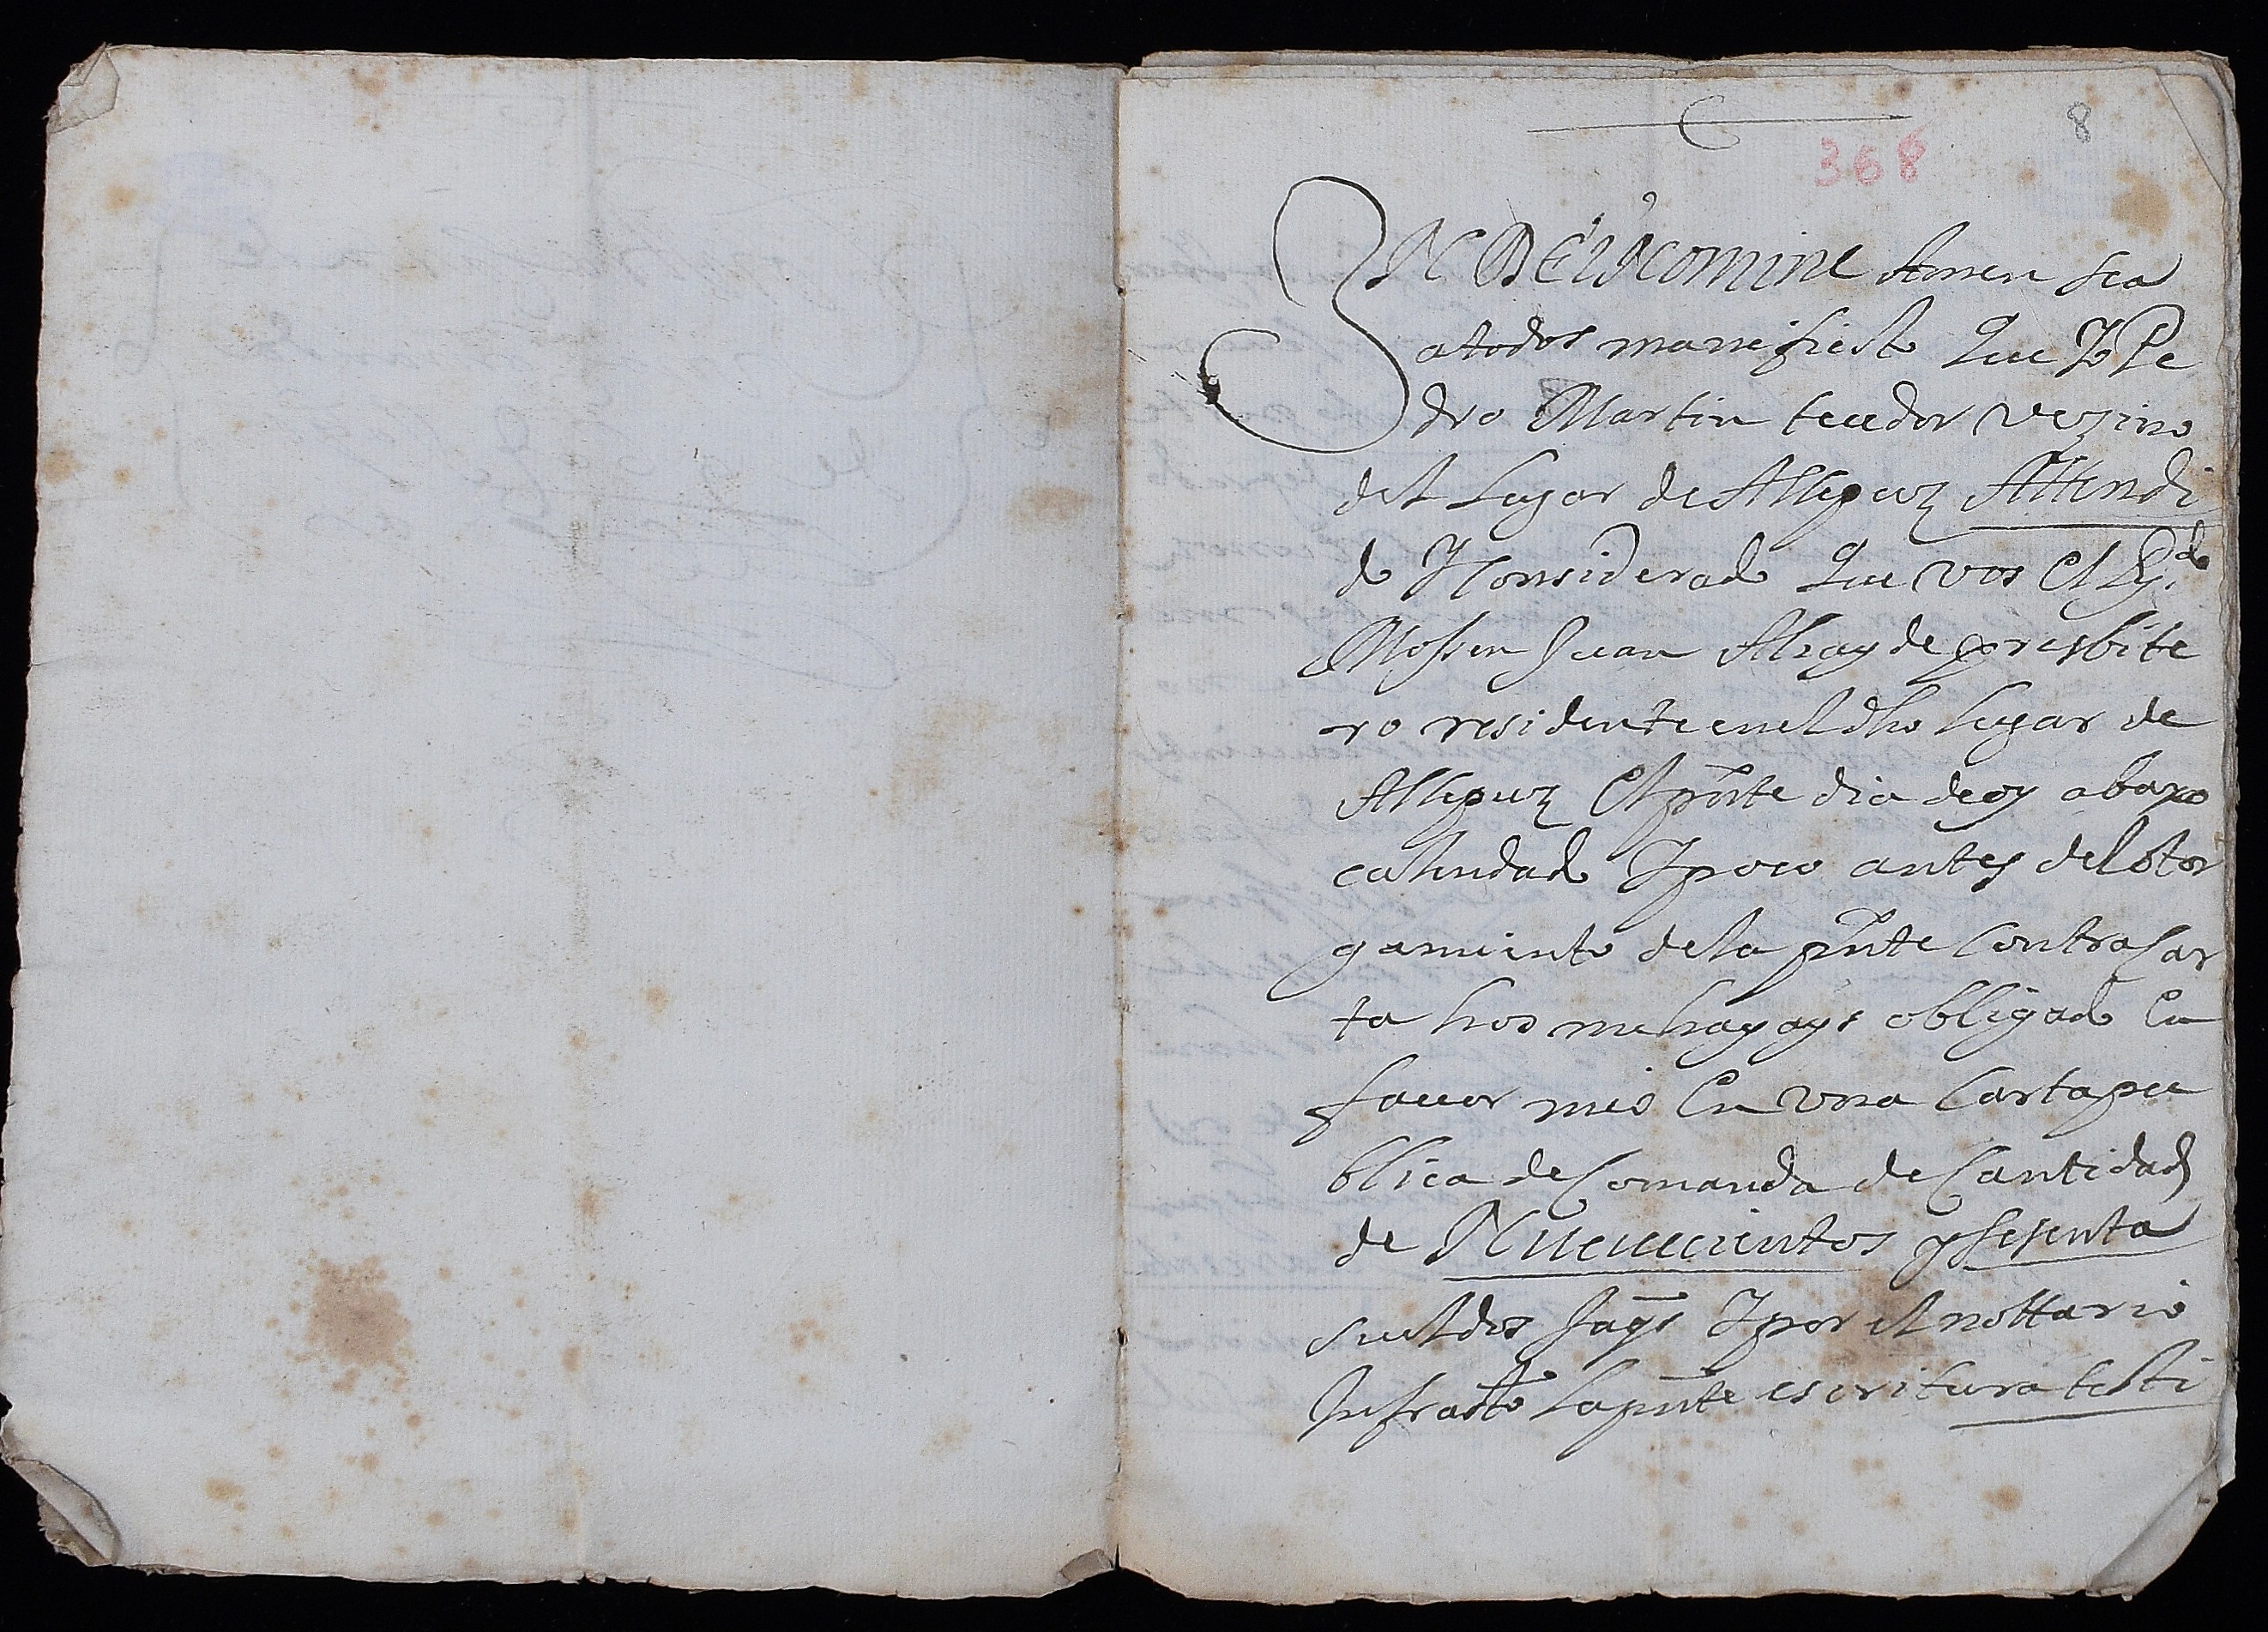 8
368
IN DEI Nomine Amen sea
atodos manifiesto Que Yo Pe
dro Martin texedor vezino
del Lugar de Allepuz Attendi
do Y Considerado Que vos El Ldo
Mossen Juan Alcayde presbite
ro residente en el dho lugar de
Allepuz El pnte dia de oy abaxo
calendado Y poco antes del otor
gamiento dela pnte Contra Car
ta hos me hayays obligado En
fauor mio En vna Carta pu
blica de Comanda de Cantidad
de Nueuecientos y sesenta
sueldos Jaqs Y por el nottario
Infrasto la pnte escritura testi